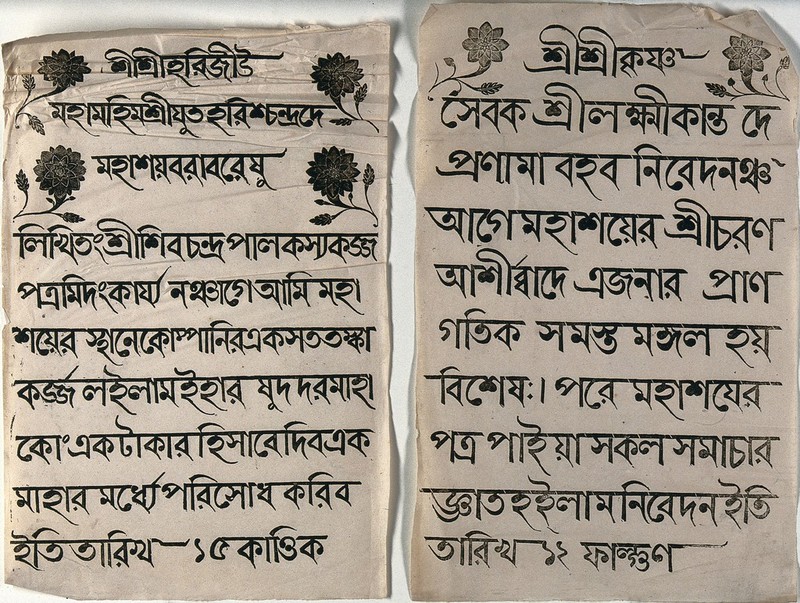 শ্রীশ্রীহরিজীউ
মহামহিমশ্রীযুতহরিশ্চন্দ্রদে
মহাশয়বরাবরেষু
লিখিতংশ্রীশিবচন্দ্রপালকস্যকর্জ্জ
পত্রমিদংকার্য্য নঞ্চাগে আমি মহা
শয়ের স্থানেকোম্পানিরএকসততঙ্কা
কর্জ্জ লইলামইহার ষুদ দরমাহা
কোংএকটাকার হিসাবেদিবএক
মাহার মর্ধ্যেপরিসোধ করিব
ইতি তারিখ — ১৫ কার্ত্তিক
শ্রীশ্রীকৃষ্ণ
সেবক শ্রীলক্ষ্মীকান্ত দে
প্রণামা বহব নিবেদনঞ্চ
আগে মহাশয়ের শ্রীচরণ
আশীর্ব্বাদে এজনার প্রাণ
গতিক সমস্ত মঙ্গল হয়
বিশেষঃ। পরে মহাশয়ের
পত্র পাইয়া সকল সমাচার
জ্ঞাতহইলাম নিবেদন ইতি
তারিখ ১২ ফাল্গুণ —